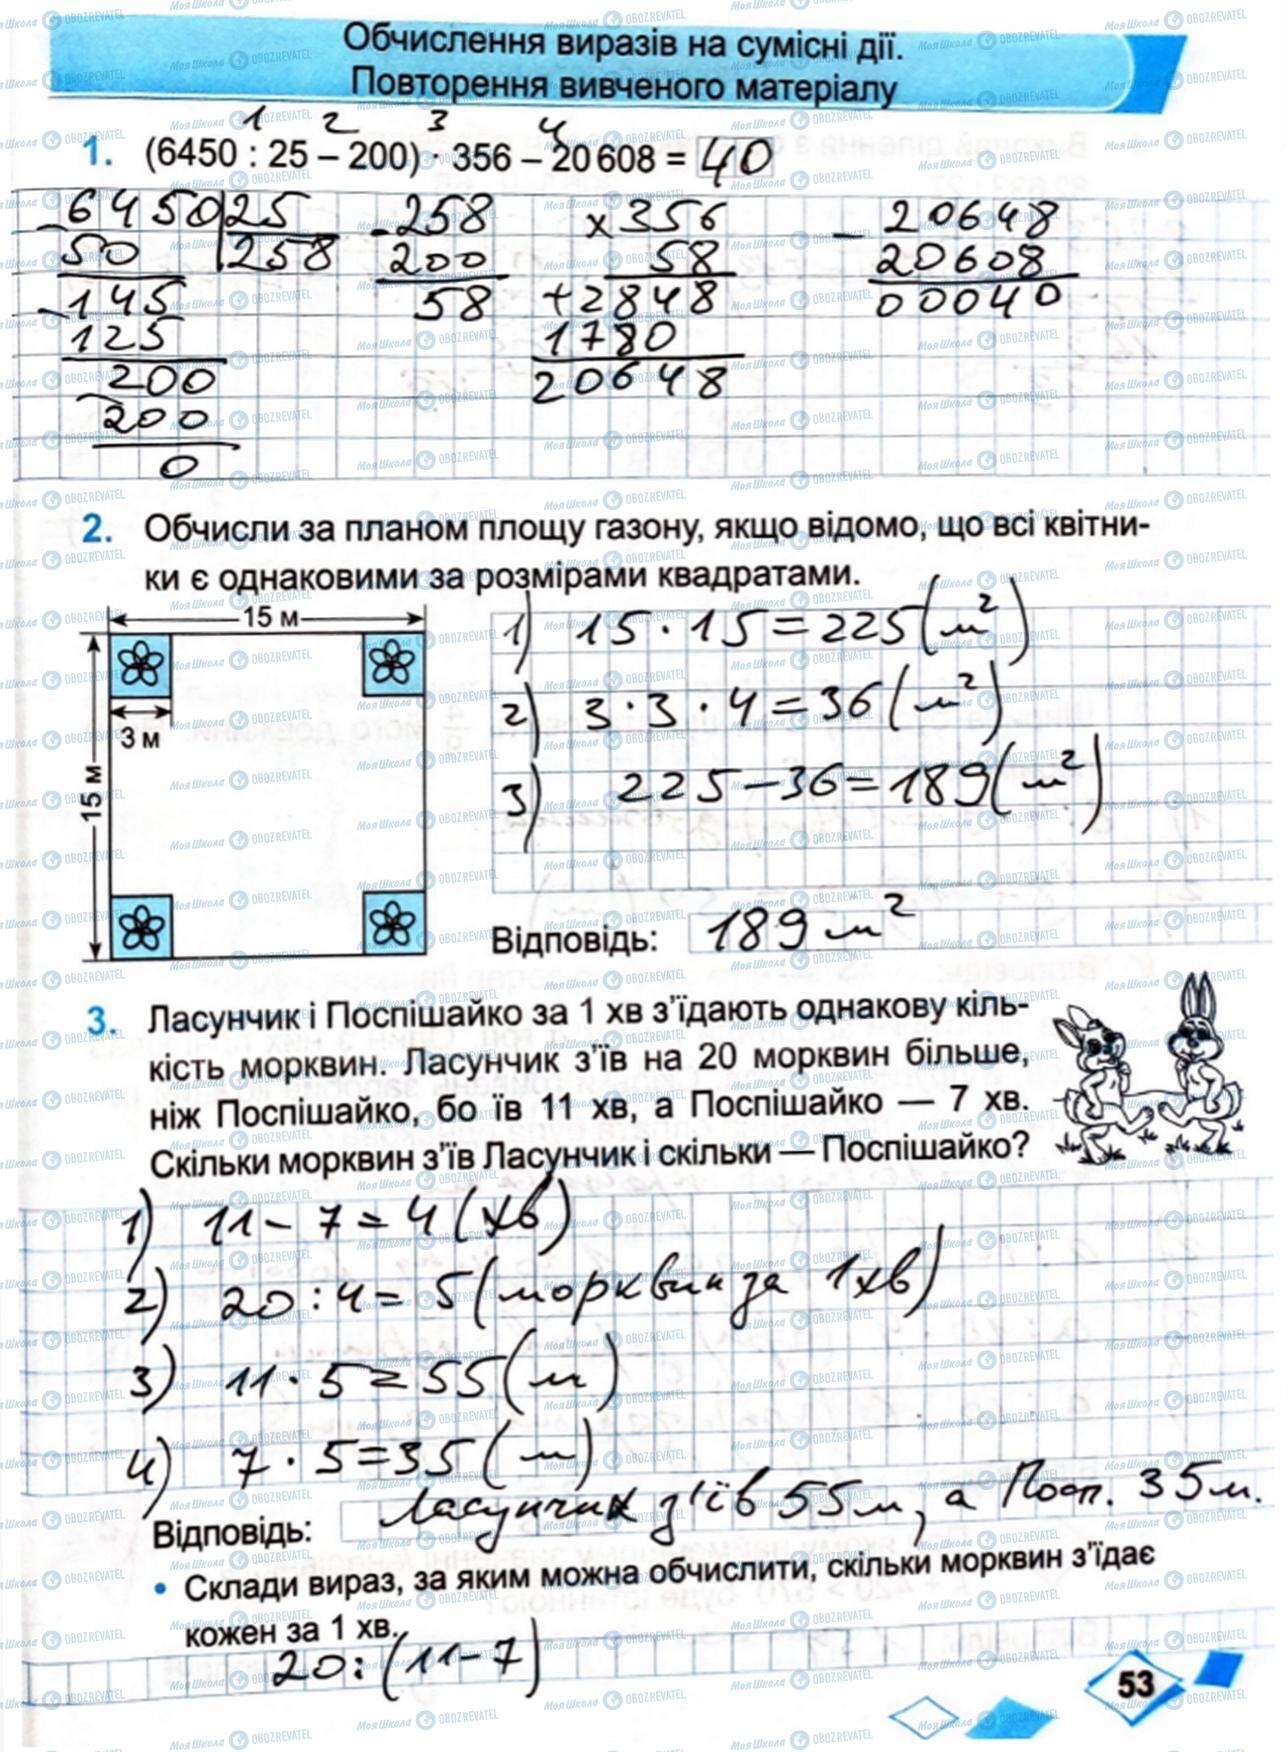 Обчислення виразів на сумісні дії.
Повторення вивченого матеріалу
1 2 3 4
1. (6450 : 25 – 200) · 356 – 20 608 = 40
– 6450 25 – 258 × 356 – 20648
50 258 200 58 20608
– 145 58 + 2848 00040
125 1780
– 200 20648
200
0
2. Обчисли за планом площу газону, якщо відомо, що всі квітни-
ки є однаковими за розмірами квадратами.
15 м
3 м
15 м
1) 15 · 15 = 225 (м²)
2) 3 · 3 · 4 = 36 (м²)
3) 225 – 36 = 189 (м²)
Відповідь: 189 м²
3. Ласунчик і Поспішайко за 1 хв з’їдають однакову кіль-
кість морквин. Ласунчик з’їв на 20 морквин більше,
ніж Поспішайко, бо їв 11 хв, а Поспішайко — 7 хв.
Скільки морквин з’їв Ласунчик і скільки — Поспішайко?
1) 11 – 7 = 4 (хв)
2) 20 : 4 = 5 (морквин за 1 хв)
3) 11 · 5 = 55 (м)
4) 7 · 5 = 35 (м)
Відповідь: Ласунчик з'їв 55 м, а Посп. 35 м.
• Склади вираз, за яким можна обчислити, скільки морквин з’їдає
кожен за 1 хв.
20 : (11 – 7)
53
Моя Школа OBOZREVATEL